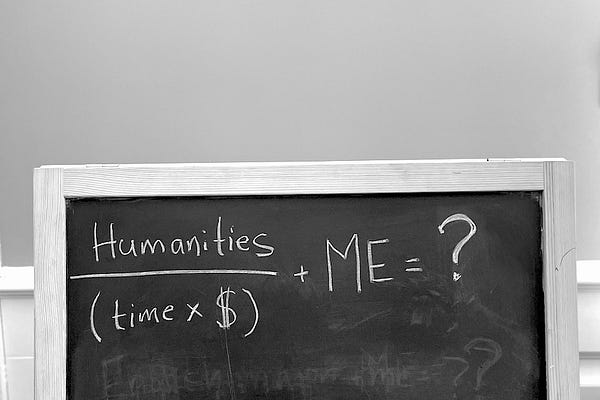 Humanities
(time x $) + ME = ?
me = ??